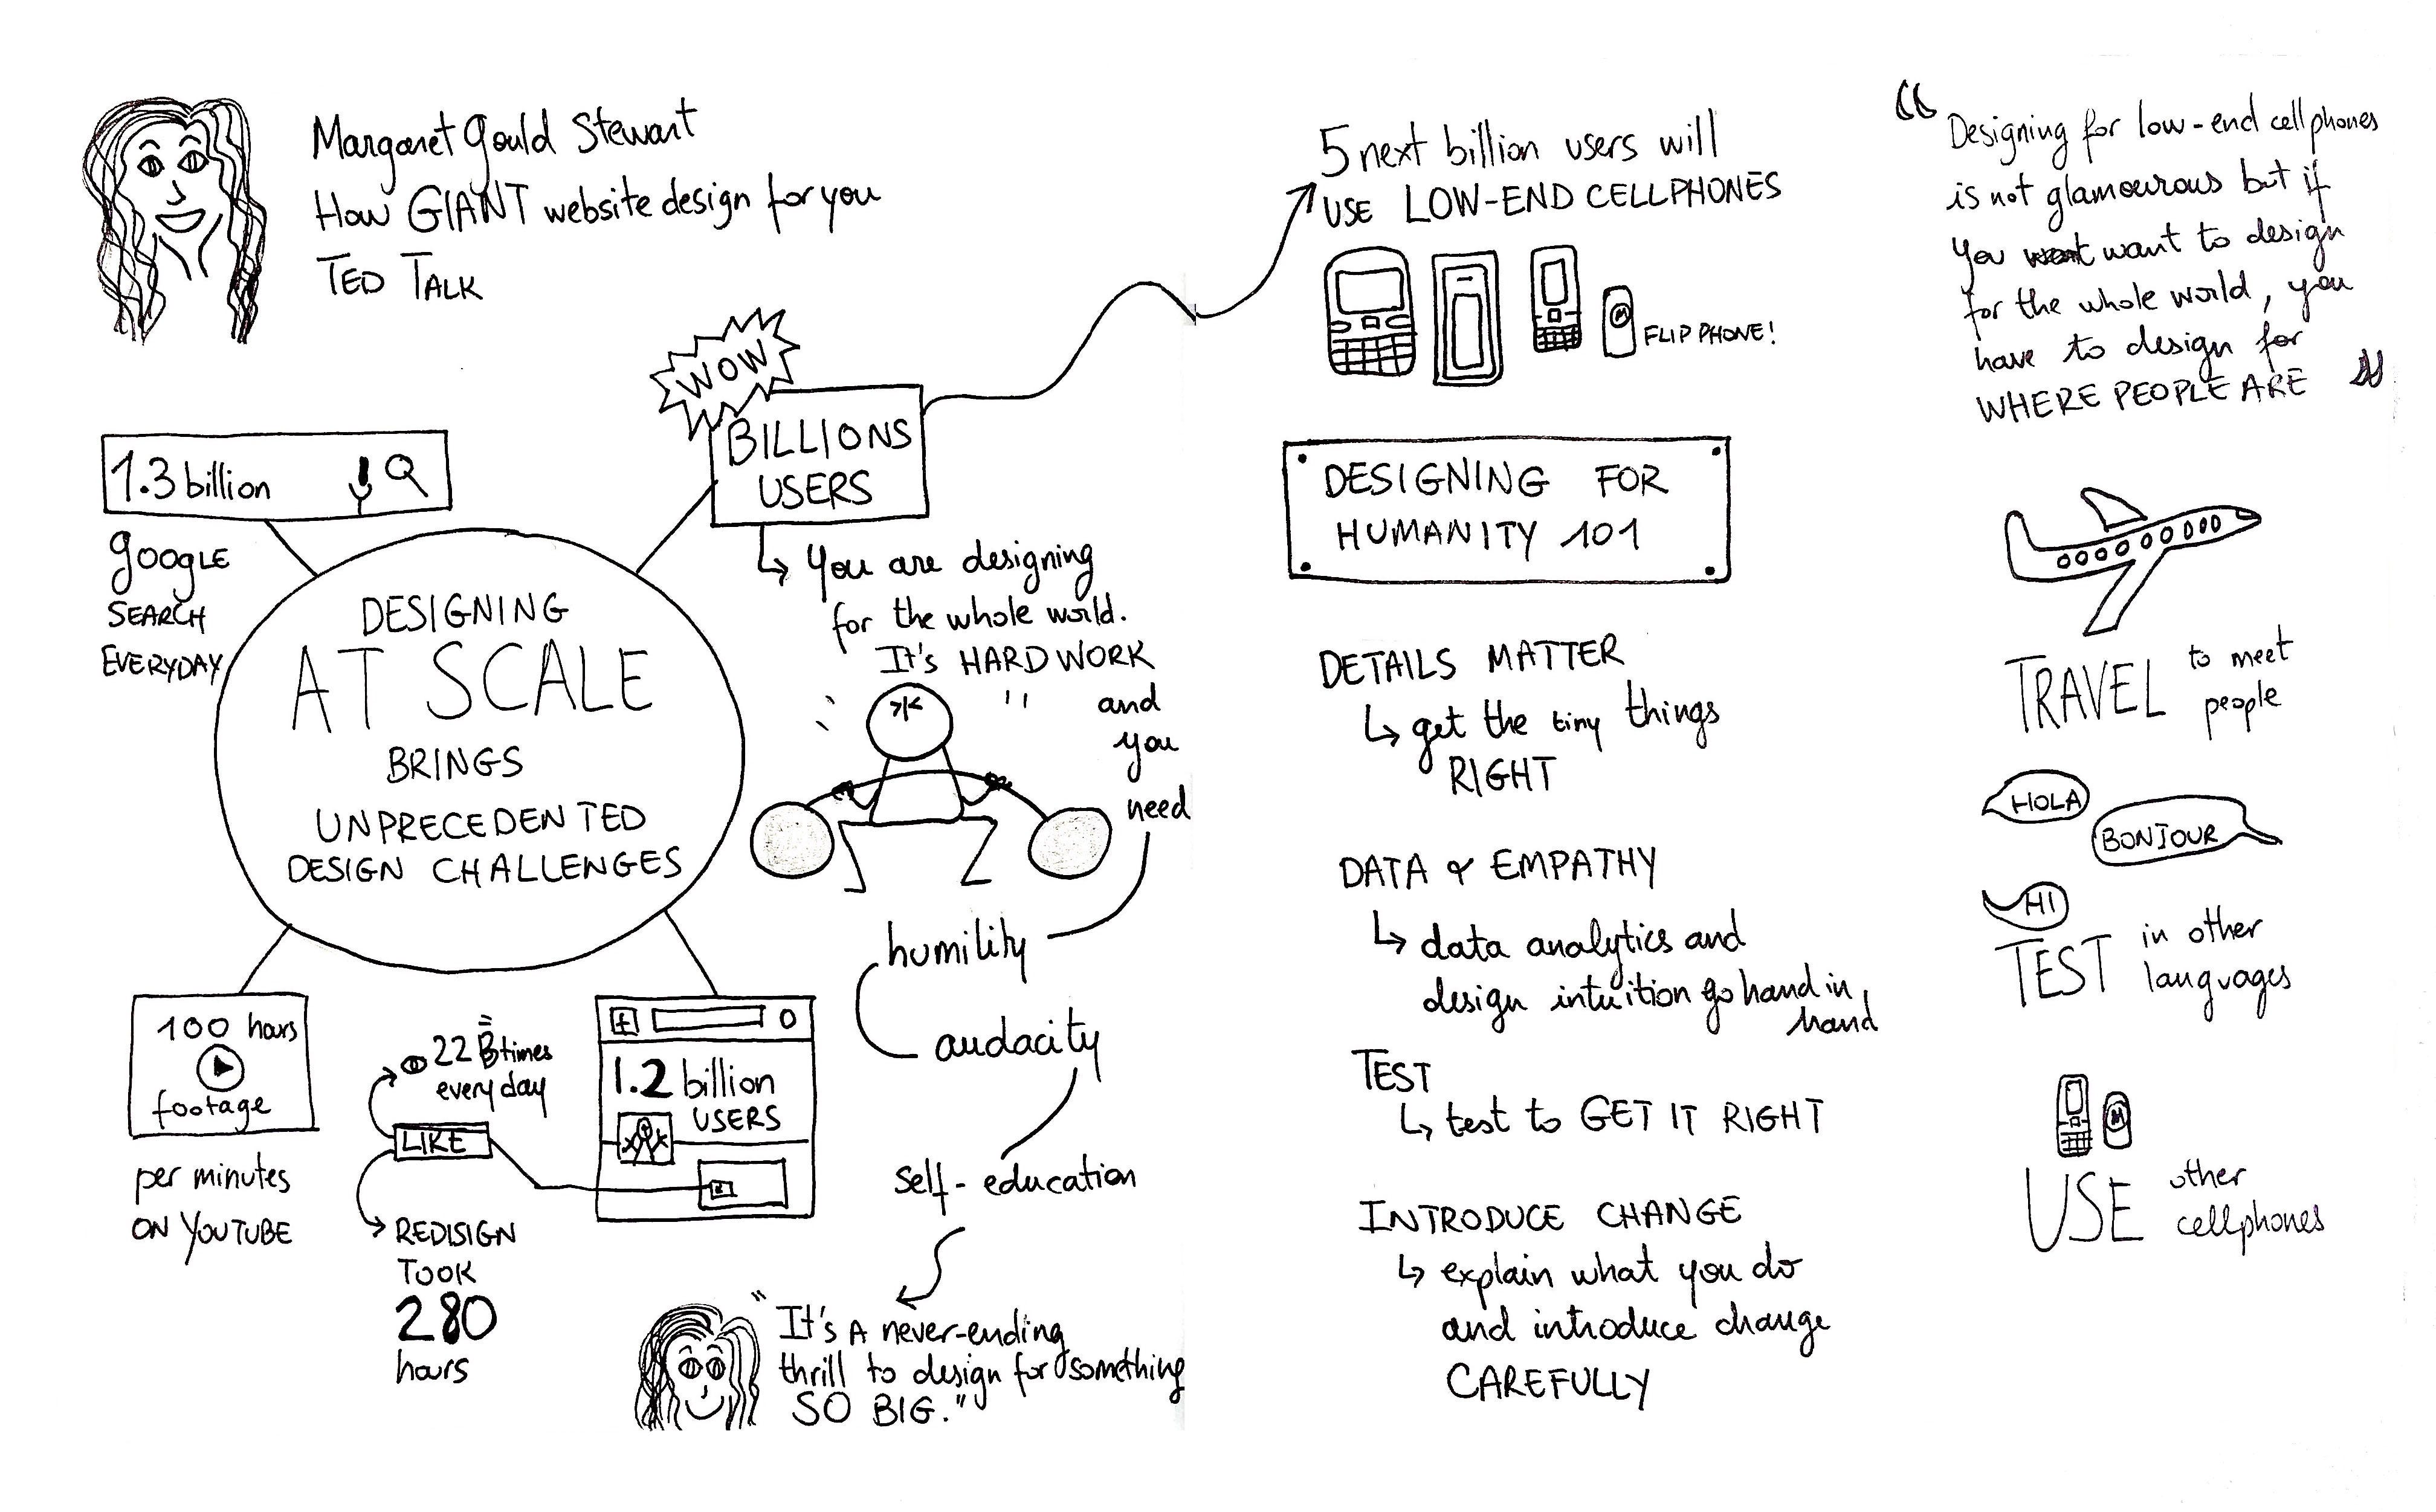 Margaret Gould Stewart
How GIANT website design for you
TED TALK
WOW
BILLIONS
USERS
1.3 billion
google
SEARCH
EVERYDAY
DESIGNING
AT SCALE
BRINGS
UNPRECEDENTED
DESIGN CHALLENGES
You are designing
for the whole world.
It's HARD WORK
and
you
need
humility
audacity
self-education
"It's A never-ending
thrill to design for something
SO BIG."
100 hours
footage
per minutes
ON YOUTUBE
22 B times
every day
LIKE
REDISIGN
TOOK
280
hours
f
1.2 billion
USERS
5 next billion users will
USE LOW-END CELLPHONES
M
FLIP PHONE!
DESIGNING FOR
HUMANITY 101
DETAILS MATTER
get the tiny things
RIGHT
DATA & EMPATHY
data analytics and
design intuition go hand in
hand
TEST
test to GET IT RIGHT
INTRODUCE CHANGE
explain what you do
and introduce change
CAREFULLY
“Designing for low-end cellphones
is not glamourous but if
you want to design
for the whole world, you
have to design for
WHERE PEOPLE ARE”
TRAVEL to meet
people
HOLA
BONJOUR
HI
TEST in other
languages
M
USE other
cellphones